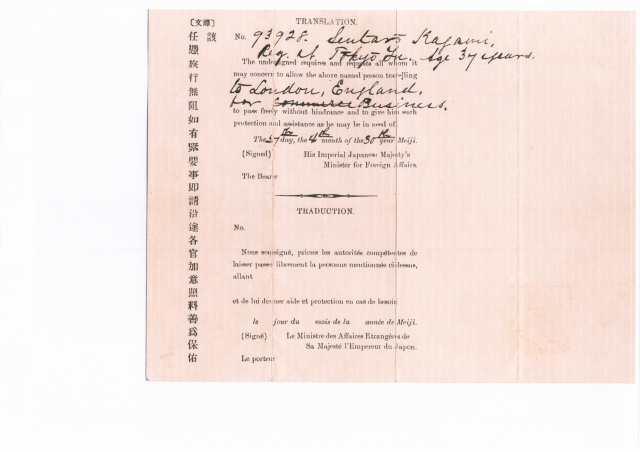 〔譯文〕
該
任憑旅行無阻如有緊要事即請沿途各官加意照料善爲保佑
TRANSLATION.
No. 93928. Sentaro Kagami,
Reg. at Tokyo Fu. Age 37 years.
The undersigned requires and requests all whom it
may concern to allow the above named person travelling
to London, England,
for Commerce Business.
to pass freely without hindrance and to give him such
protection and assistance as he may be in need of.
The 27th day, the 4th month of the 30th year Meiji.
(Signed) His Imperial Japanese Majesty's
Minister for Foreign Affairs.
The Bearer
TRADUCTION.
No.
Nous soussigné, prions les autorités compétentes de
laisser passer librement la personne mentionnée ci-dessus,
allant
et de lui donner aide et protection en cas de besoin
le jour du mois de la année de Meiji.
(Signé) Le Ministre des Affaires Etrangères de
Sa Majesté l'Empereur du Japon.
Le porteur